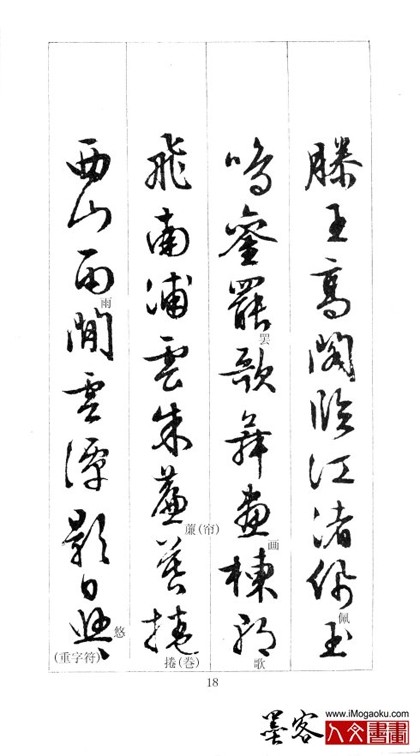 滕王高閣臨江渚佩玉
佩
鳴鑾罷歌舞畫棟朝
罢
画
歌
飛南浦雲朱簾暮捲
薕(帘)
捲(卷)
西山雨閒雲潭影日悠
雨
悠
(重字符)
18
墨客
www.iMogaoku.com
人文書畫